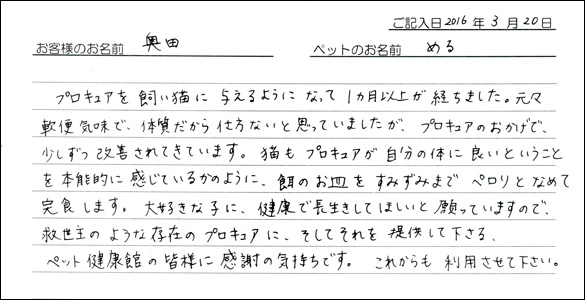 ご記入日2016年3月20日
お客様のお名前 奥田 ペットのお名前 める
プロキュアを飼い猫に与えるようになって1カ月以上が経ちました。元々
軟便気味で、体質だから仕方ないと思っていましたが、プロキュアのおかげで、
少しずつ改善されてきています。猫もプロキュアが自分の体に良いということ
を本能的に感じているかのように、餌のお皿をすみずみまでペロリとなめて
完食します。大好きな子に、健康で長生きしてほしいと願っていますので、
救世主のような存在のプロキュアに、そしてそれを提供して下さる、
ペット健康館の皆様に感謝の気持ちです。これからも利用させて下さい。